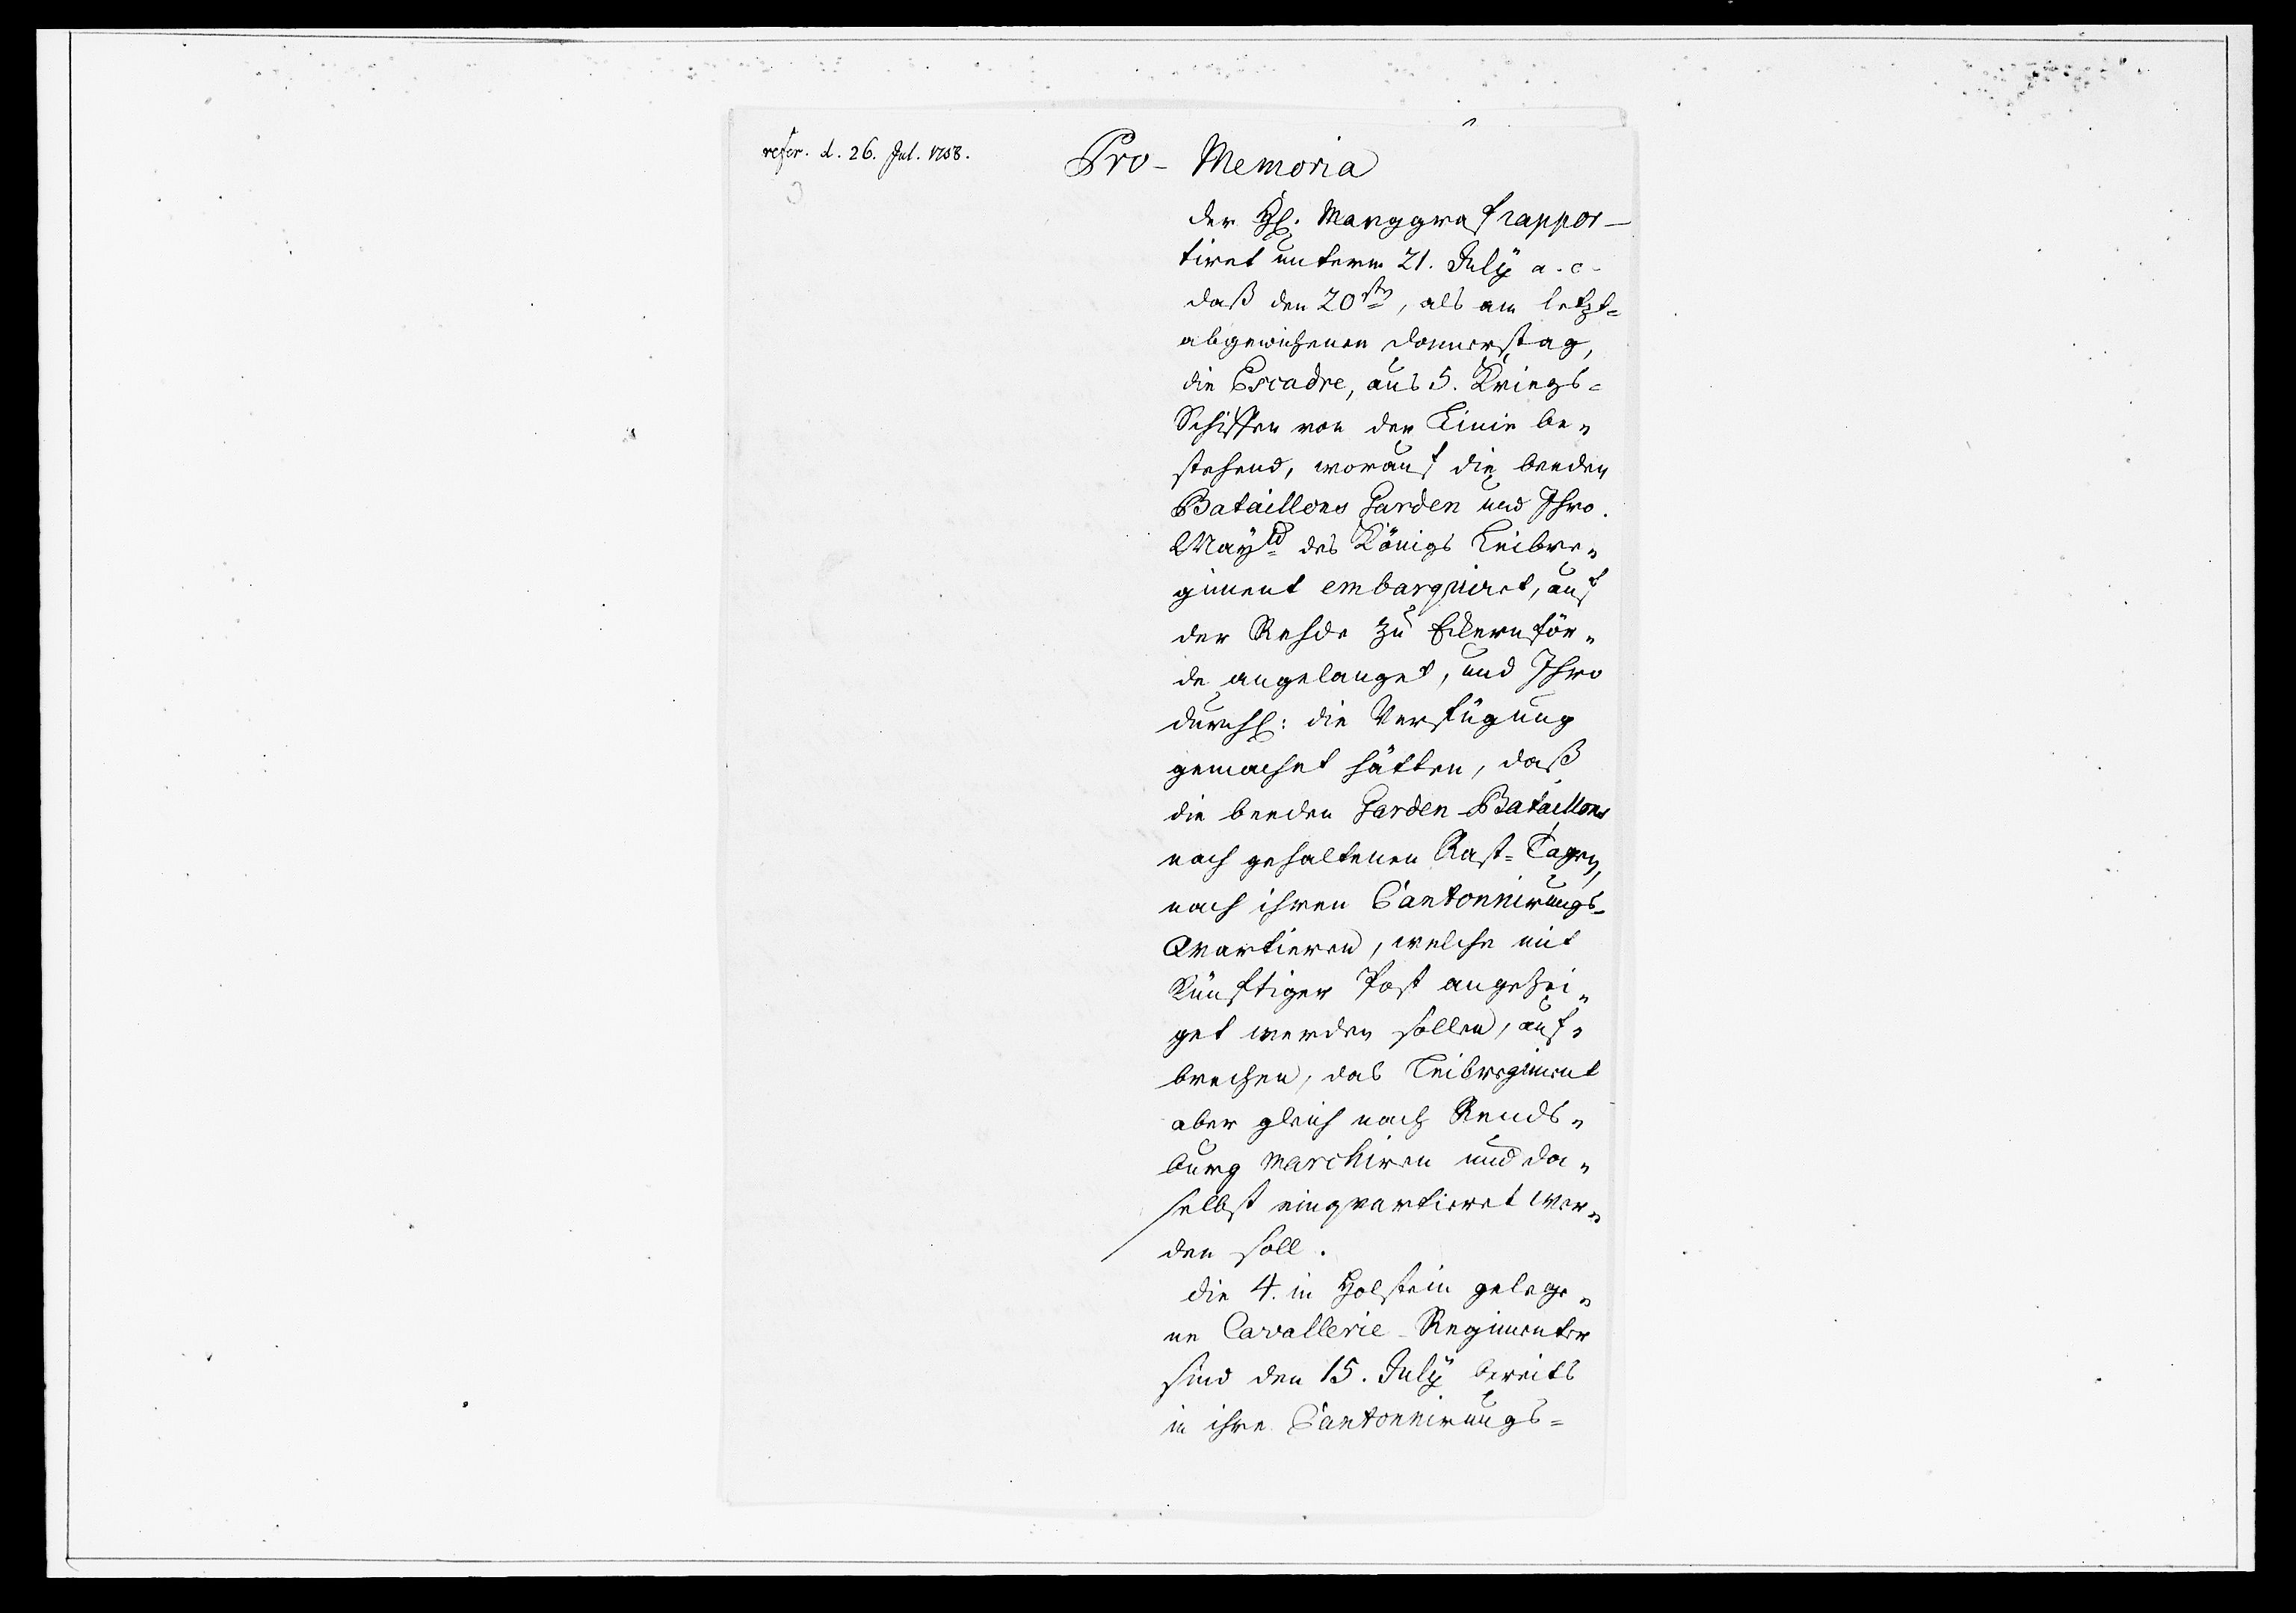 refer. d. 26. Jul. 1758.
Pro-Memoria
der H. Marggraf rappor-
tiret unterm 21. July a. c.
daß den 20stn, als am letzt=
abgewichenen Donnerstag,
die Escadre, aus 5. Kriegs=
Schiffen von der Linie be„
stehend, worauf die beeden
Bataillons Garden und Ihro.
Maytt des Königs Leibre„
giment embarquiret, auf
der Rehde zu Eckernför„
de angelanget, und Ihro
Durchl: die Verfügung
gemachet hätten, daß
die beeden Garden-Bataillons
nach gehaltenen Rast=Tagen,
nach ihren Cantonnirungs-
Quartieren, welche mit
künftiger Post angezei„
get werden sollen, auf„
brechen, das Leibregiment
aber gleich nach Rends„
burg marchiren und da„
selbst einquartieret wer„
den soll.
die 4. in Holstein gelege„
ne Cavallerie-Regimenter
sind den 15. July bereits
in ihre Cantonnirungs=